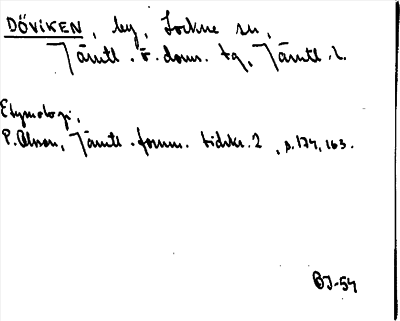 DÖVIKEN, by, Lockne sn,
Jämtl. ö. doms. tg, Jämtl. l.
Etymologi,
P. Olsson, Jämtl. fornm. tidskr. 2, s. 174, 163.
BJ-54